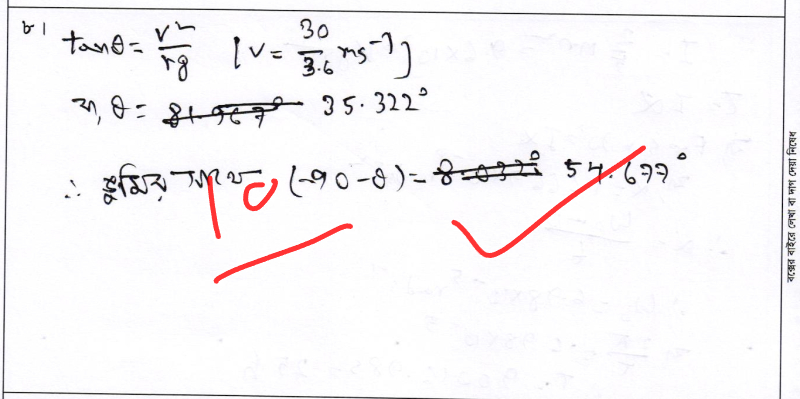 ৮। tanθ = v²/rg [v = 30/3.6 ms⁻¹]
বা, θ = 35.322°
∴ ভূমির সাথে (90-θ) = 54.677°
10
বক্সের বাইরে লেখা বা দাগ দেয়া নিষেধ